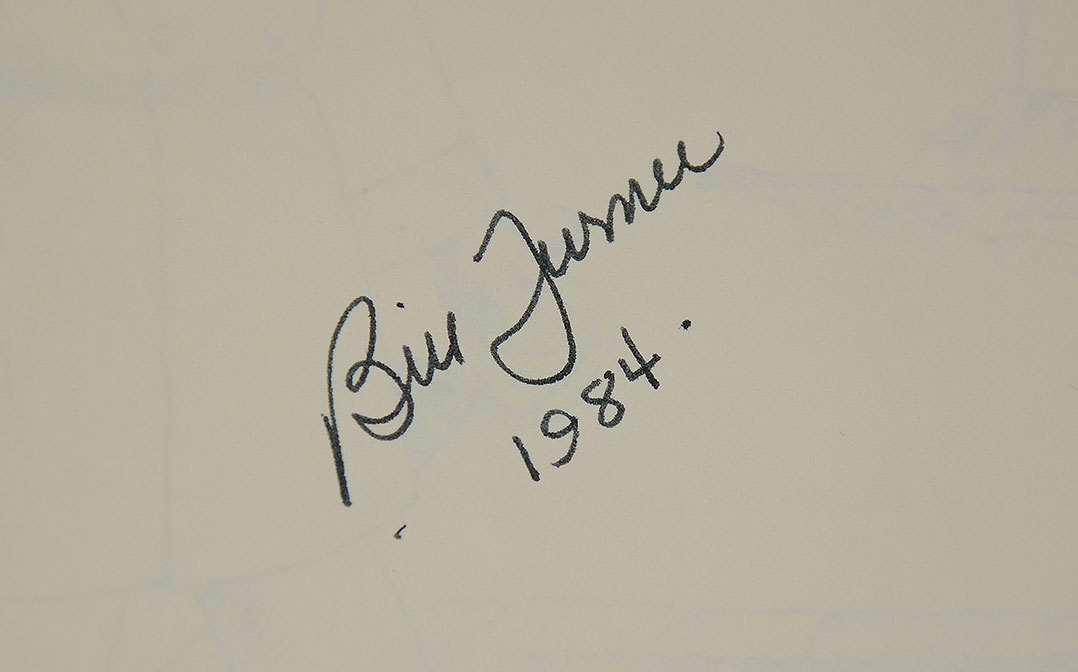 Bill Turner
1984.